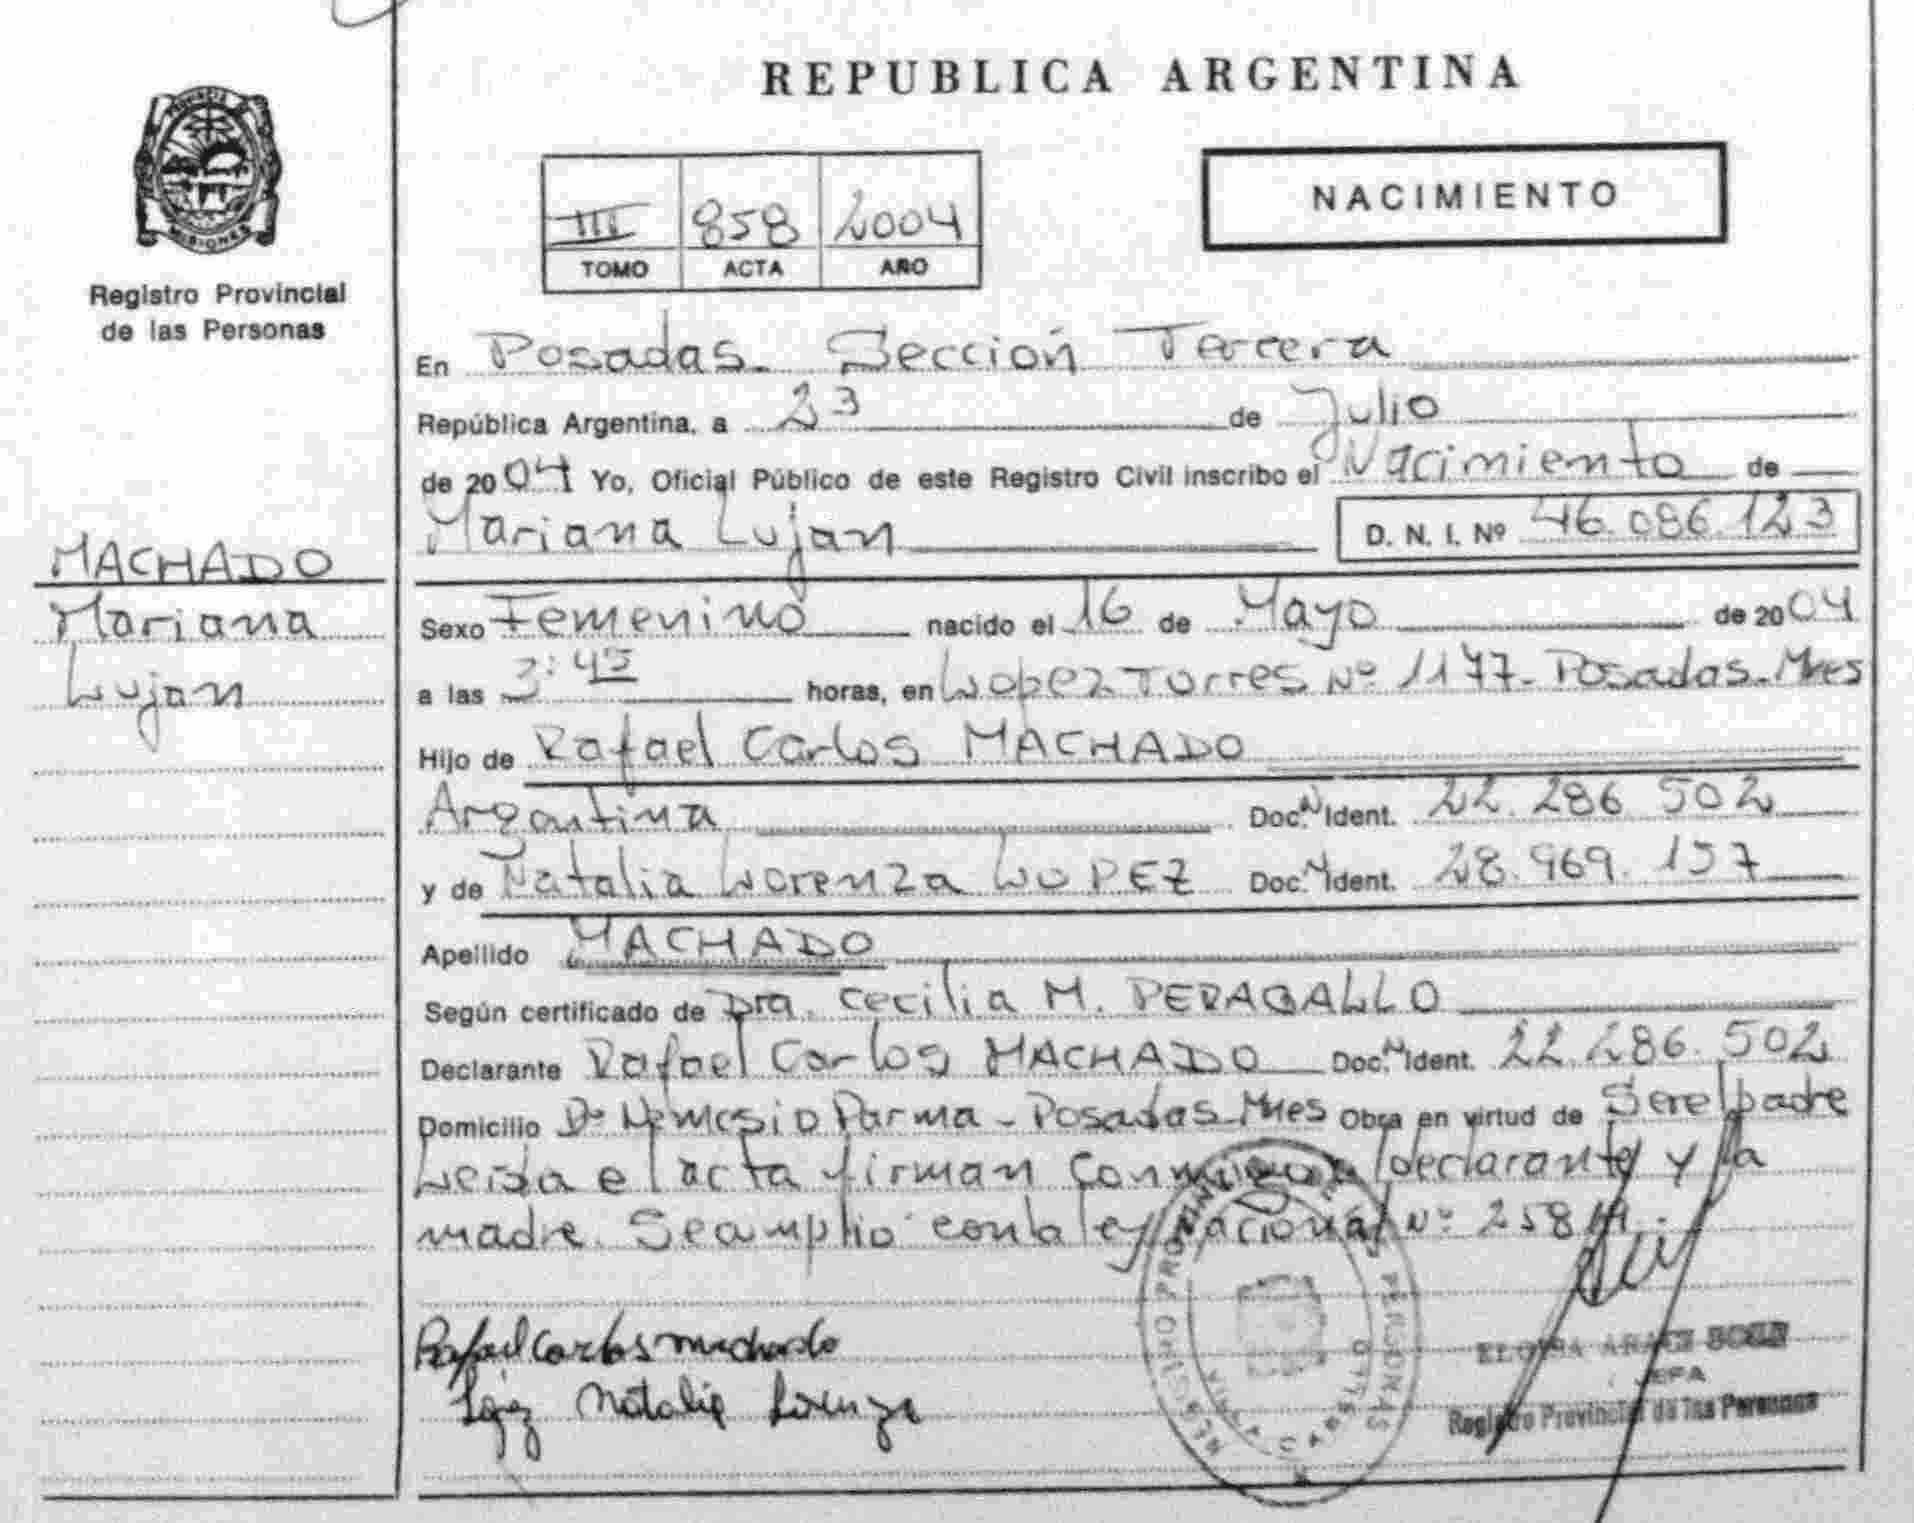 REPUBLICA ARGENTINA
PROVINCIA DE MISIONES
Registro Provincial
de las Personas
NACIMIENTO
III 858 2004
TOMO ACTA AÑO
En Posadas. Sección Tercera
República Argentina, a 23 de Julio
de 2004 Yo, Oficial Público de este Registro Civil inscribo el Nacimiento de
Mariana Lujan D. N. I. Nº 46.086.123
MACHADO
Mariana
Lujan
Sexo Femenino nacido el 16 de Mayo de 2004
a las 3:45 horas, en Lopez Torres Nº 1177-Posadas-Mnes
Hijo de Rafael Carlos MACHADO
Argentina Doc. N Ident. 22.286.502
y de Natalia Lorenza LOPEZ Doc. N Ident. 28.969.157
Apellido MACHADO
Según certificado de Dra. Cecilia M. PERAGALLO
Declarante Rafael Carlos MACHADO Doc. N Ident. 22.286.502
Domicilio Bº Nemesio Parma - Posadas-Mnes Obra en virtud de Ser el padre
Leida el acta firman conmigo el declarante y la
madre. Se amplio con la ley nacional Nº 25819.
Rafael Carlos machado
López Natalia Lorenza
REGISTRO PROVINCIAL DE LAS PERSONAS
JEFA
Registro Provincial de las Personas